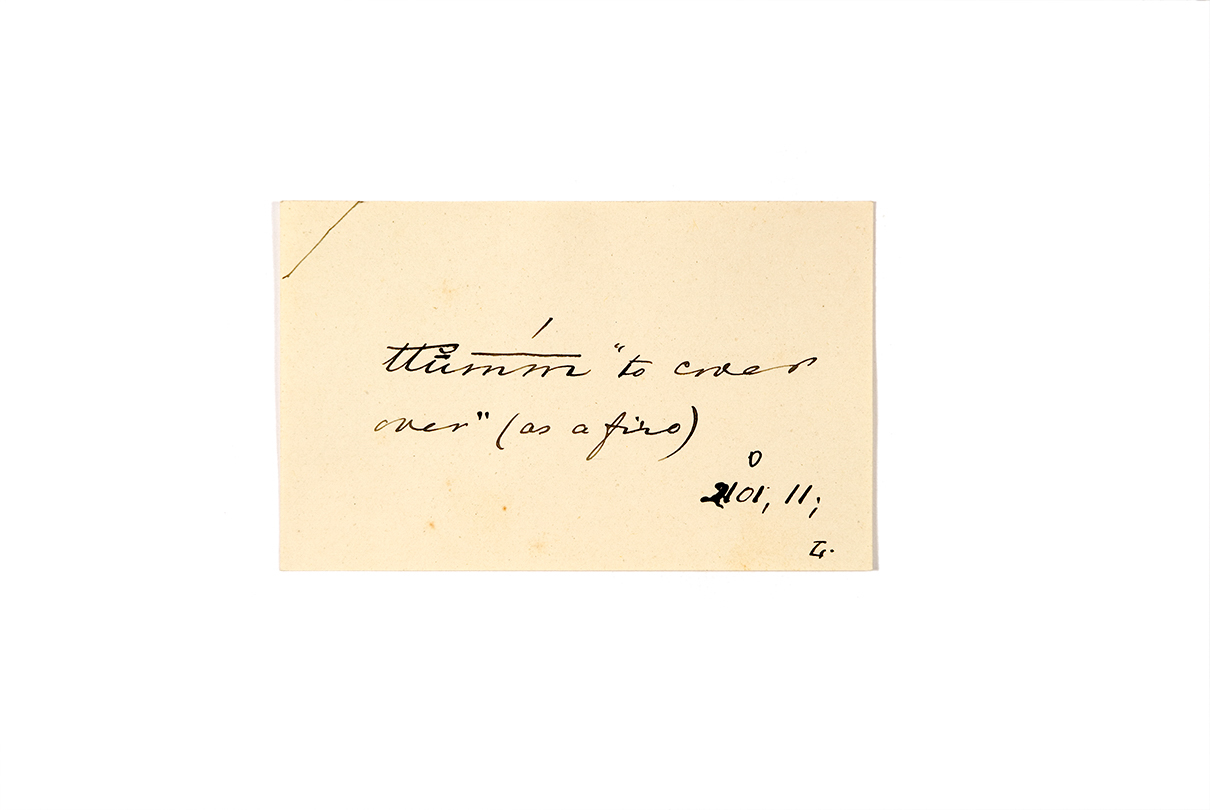 ttŭm̅ḿ̅ "to cover
over" (as a fire)
0
2101, 11;
L.